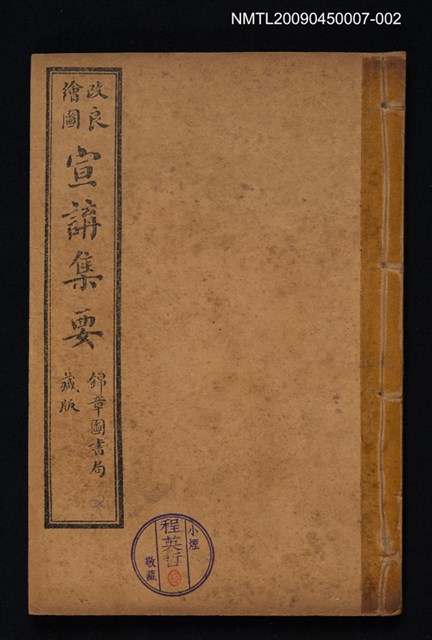 NMTL20090450007-002
改良
繪圖
宣講集要
錦章圖書局
藏版
小煙
程英哲
敬讀